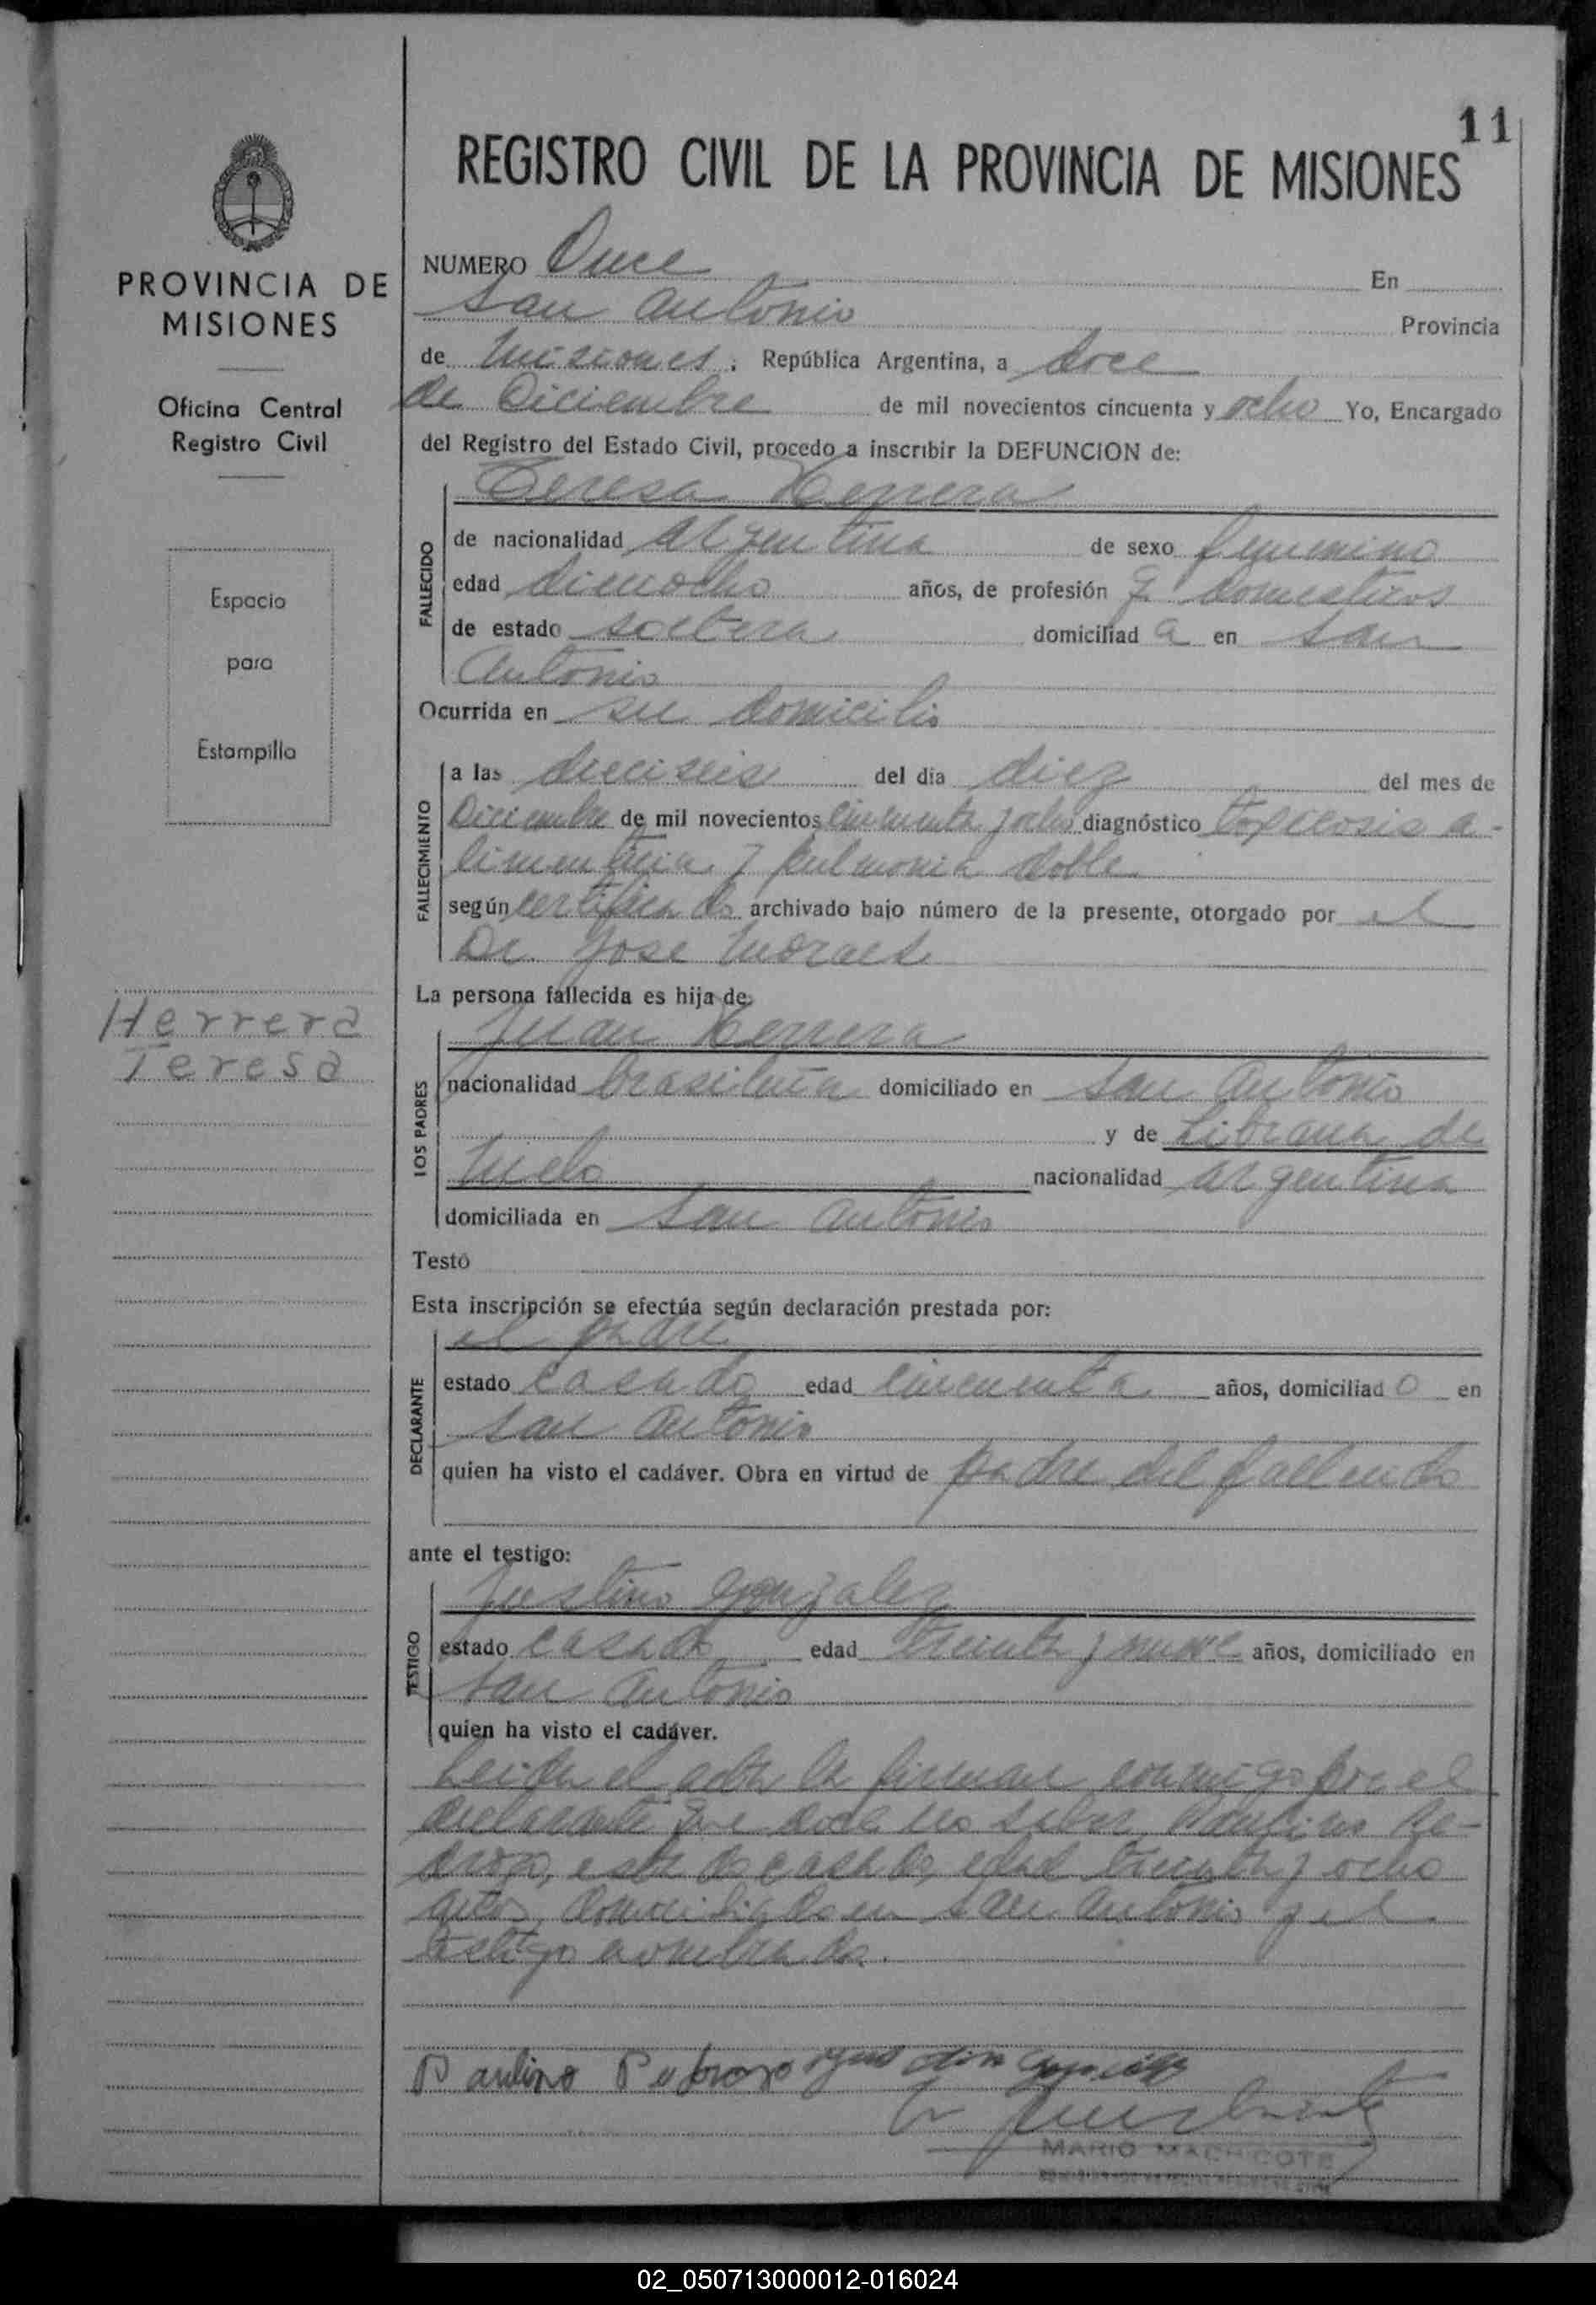 11
REGISTRO CIVIL DE LA PROVINCIA DE MISIONES
PROVINCIA DE
MISIONES
Oficina Central
Registro Civil
Espacio
para
Estampilla
Herrera
Teresa
NUMERO Once En
San Antonio Provincia
de Misiones, República Argentina, a doce
de Diciembre de mil novecientos cincuenta y ocho Yo, Encargado
del Registro del Estado Civil, procedo a inscribir la DEFUNCION de:
Teresa Herrera
FALLECIDO
de nacionalidad argentina de sexo femenino
edad dieciocho años, de profesión q. domesticos
de estado soltera domiciliad a en San
Antonio
Ocurrida en su domicilio
FALLECIMIENTO
a las dieciseis del día diez del mes de
Diciembre de mil novecientos cincuenta y ocho diagnóstico toxicosis a-
limenticia y pulmonia doble
según certificado archivado bajo número de la presente, otorgado por el
Dr. Jose Moraes
La persona fallecida es hija de:
Juan Herrera
LOS PADRES
nacionalidad brasileña domiciliado en San Antonio
y de Librana de
Melo nacionalidad argentina
domiciliada en San Antonio
Testó
Esta inscripción se efectúa según declaración prestada por:
el padre
DECLARANTE
estado casado edad cincuenta años, domiciliad o en
San Antonio
quien ha visto el cadáver. Obra en virtud de padre del fallecido
ante el testigo:
Justino Gonzalez
TESTIGO
estado casado edad treinta y nueve años, domiciliado en
San Antonio
quien ha visto el cadáver.
Leida el acta la firman conmigo por el
declarante que dice no saber, Paulino Pe-
drozo, estado casado, edad treinta y ocho
años, domiciliado en San Antonio y el
testigo nombrado.
Paulino Pedrozo
MARIO MACHICOTE
02_050713000012-016024